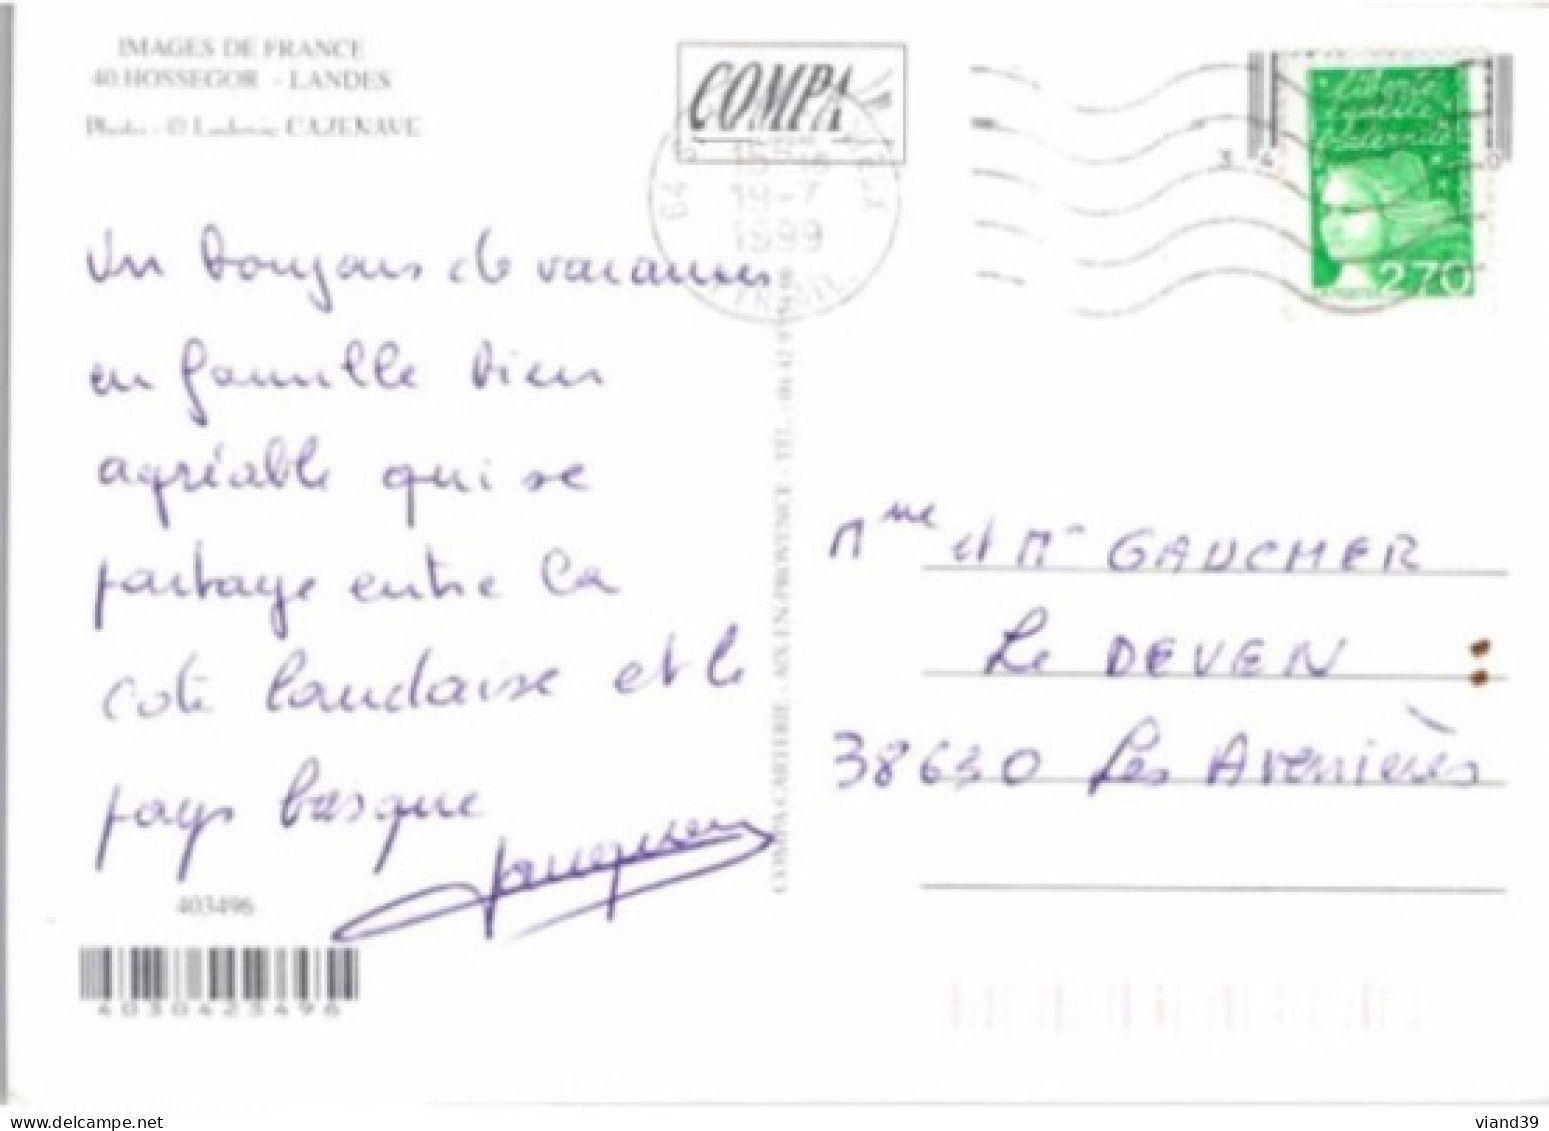 IMAGES DE FRANCE
40.HOSSEGOR - LANDES
Photo - © Ludovic CAZENAVE
COMPA
15-18
19-7
1999
Liberté
égalité
fraternité
2,70
Un bonjour de vacances
en famille bien
agréable qui se
partage entre la
cote landaise et le
pays basque
403496
4030423496
COMPA CARTERIE - AIX-EN-PROVENCE - TÉL. : 04 42 97
Mme et Mr GAUCHER
Le DEVEN
38630 Les Avenières
viand39